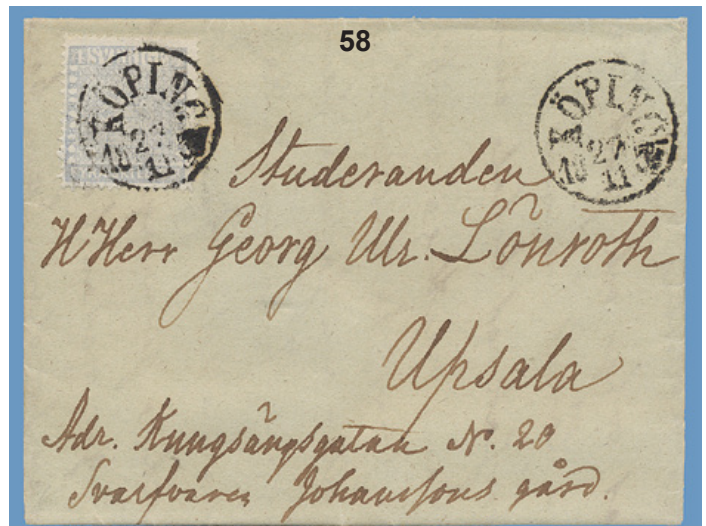 58
KÖPING
27
11
KÖPING
27
11
Studeranden
HHerr Georg Ulr. Lönroth
Upsala
Adr. Kungsängsgatan N. 20
Svarfvaren Johanssons gård.